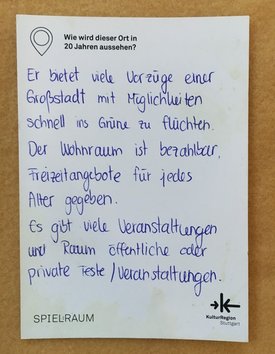 Wie wird dieser Ort in
20 Jahren aussehen?
Er bietet viele Vorzüge einer
Großstadt mit Möglichkeiten
schnell ins Grüne zu flüchten.
Der Wohnraum ist bezahlbar,
Freizeitangebote für jedes
Alter gegeben.
Es gibt viele Veranstaltungen
und Raum öffentliche oder
private Feste/Veranstaltungen.
SPIEL:RAUM
KulturRegion
Stuttgart